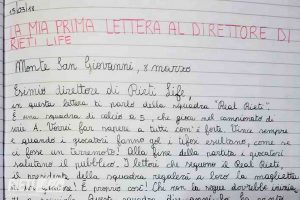 13/03/18
LA MIA PRIMA LETTERA AL DIRETTORE DI
RIETI LIFE
Monte San Giovanni, 8 marzo
Esimio direttore di Rieti Life,
in questa lettera ti parlo della squadra "Real Rieti".
È una squadra di calcio a 5, che gioca nel campionato di
serie A. Vorrei far sapere a tutti com'è forte. Vince sempre
e quando i giocatori fanno gol i tifosi esultano, come se
ci fosse un terremoto! Alla fine della partita i giocatori
salutano il pubblico. I lettori che seguono il Real Rieti
il presidente della squadra regalerà a loro la maglietta
È proprio così! Chi non la segue dovrebbe iniziare